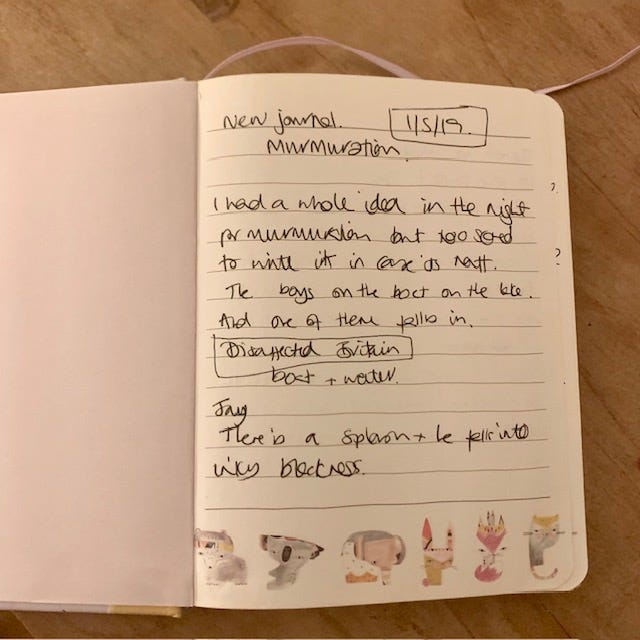 New journal. 1/5/19.
Murmuration.
I had a whole idea in the night
for murmuration but too scared
to write it in case its naff.
The boys on the boat on the lake.
And one of them falls in.
Disaffected Britain
boat + water.
Jay
There is a splash + he falls into
inky blackness.